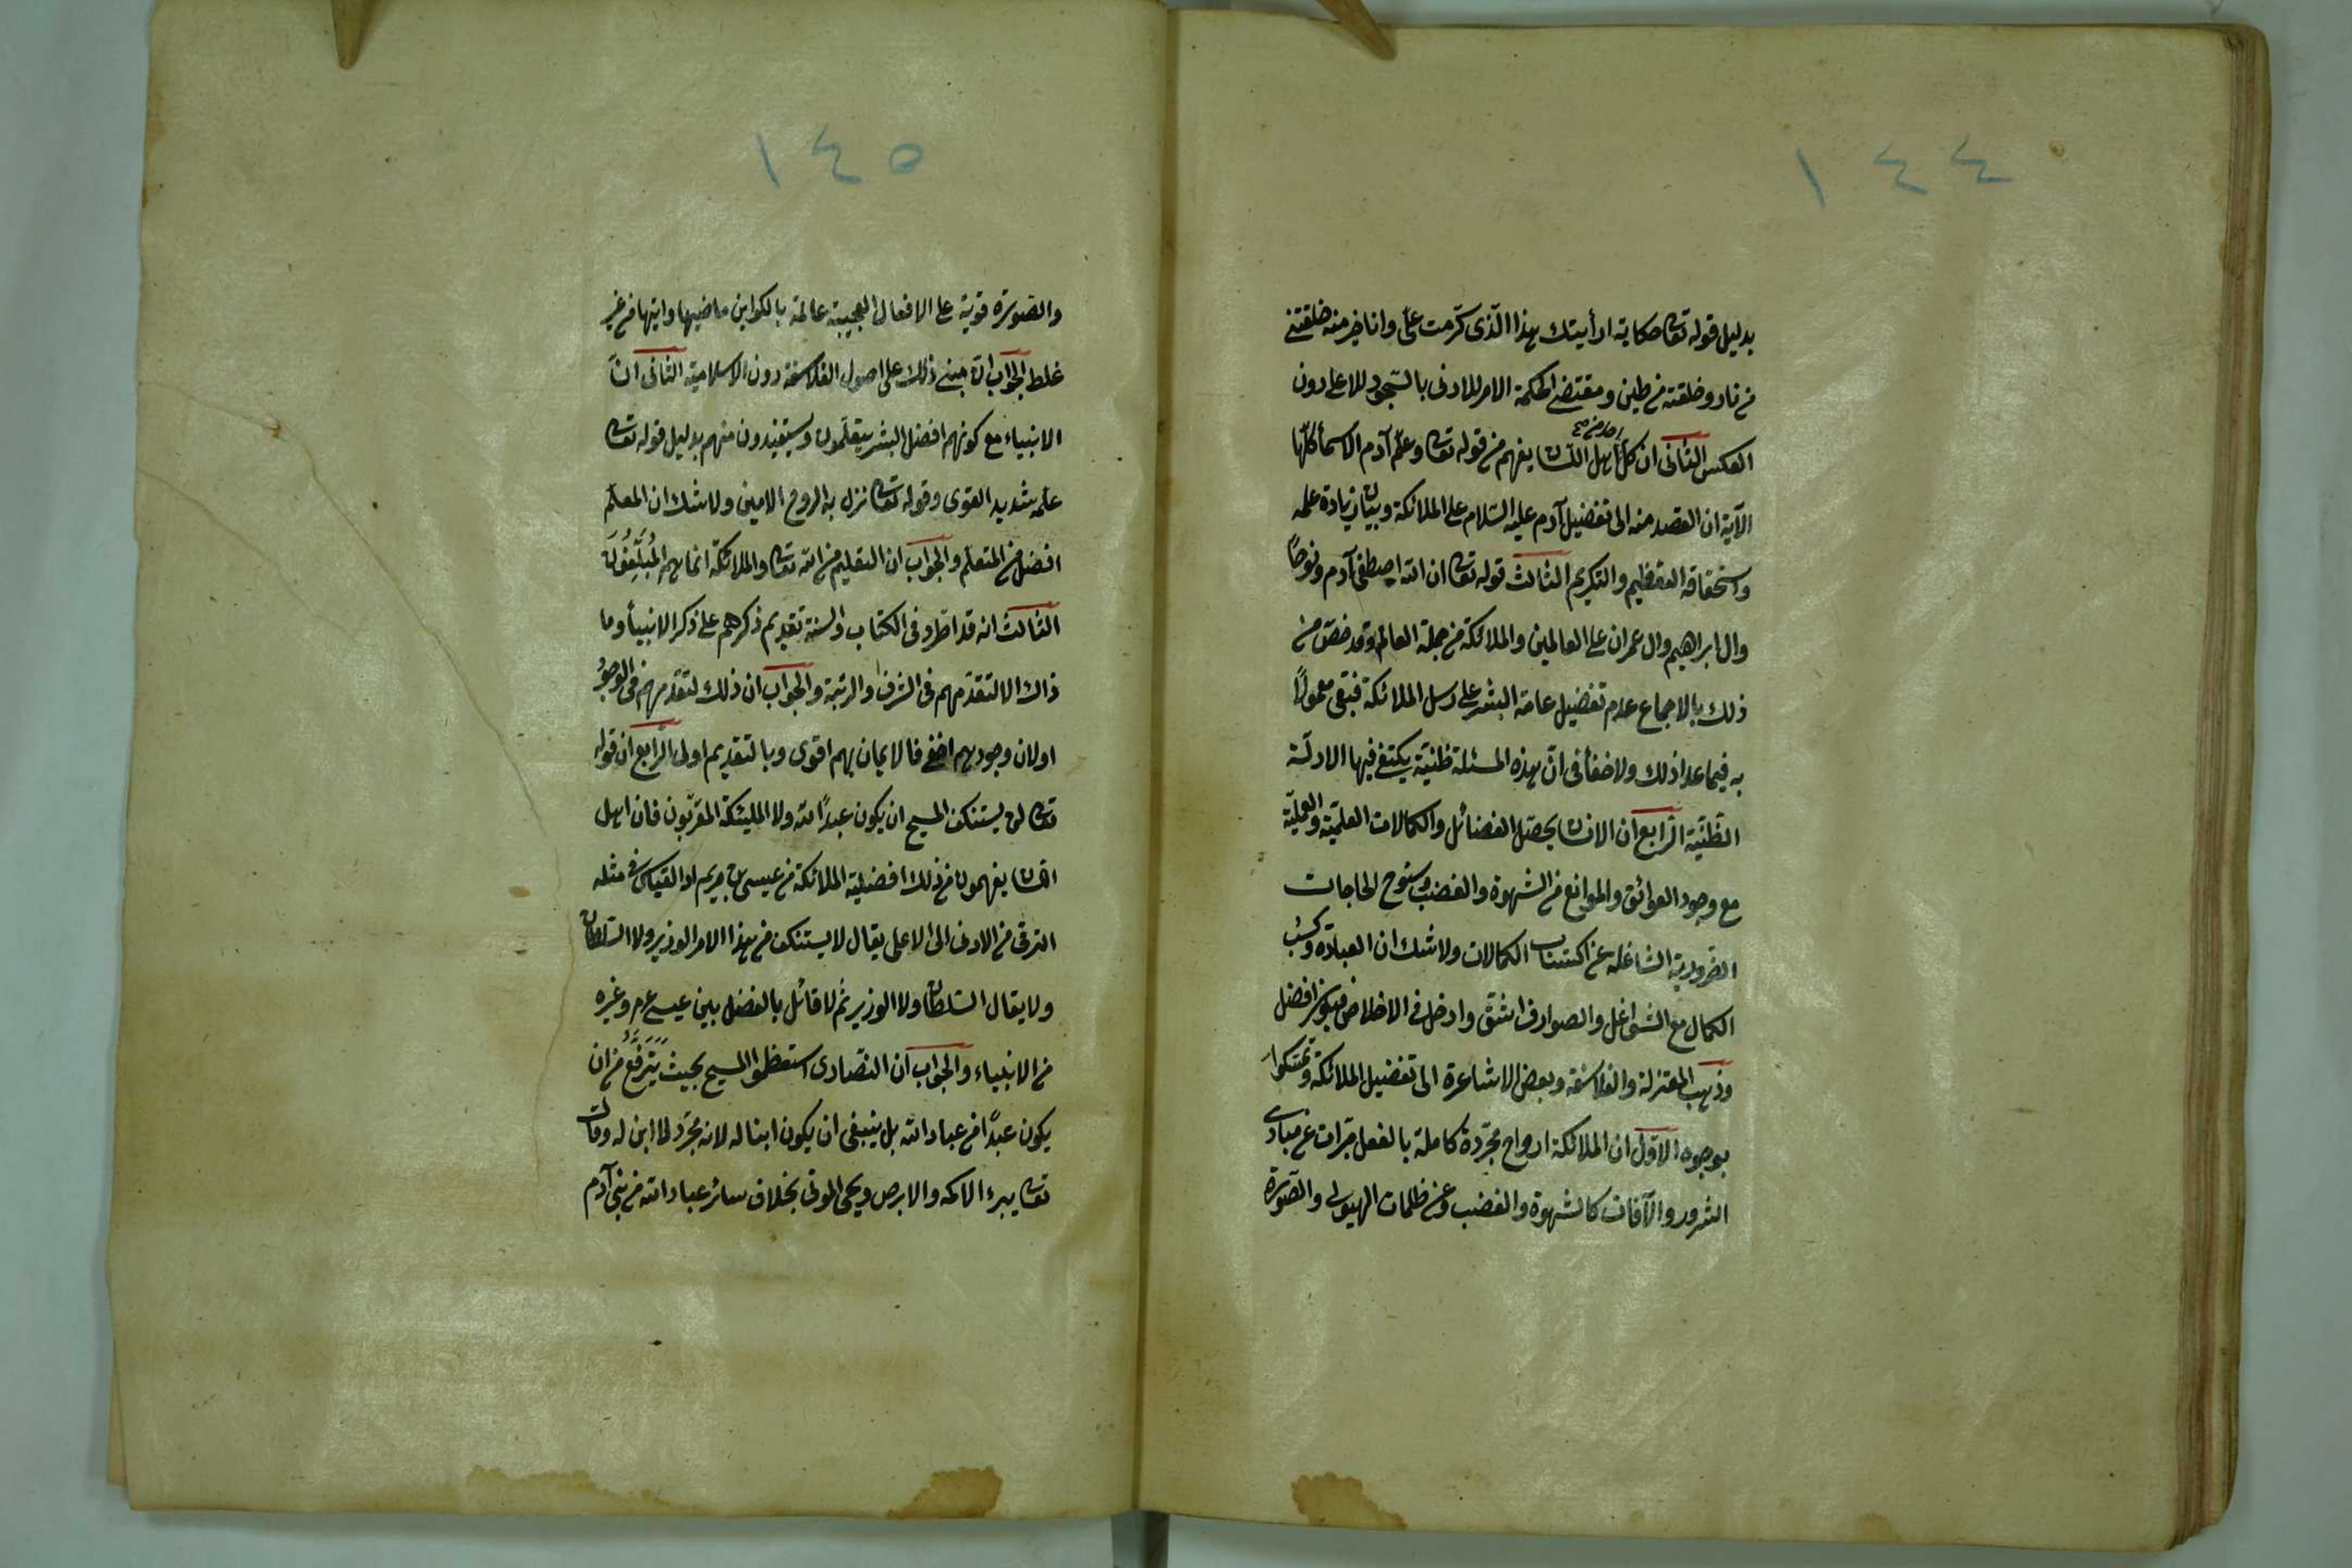 ١٤٤
بدليل قوله تعا حكاية ارأيتك هذا الذى كرمت علىّ وانا خير منه خلقتنى
من نار وخلقته من طين ومقتضى الحكمة الامر للادنى بالسجود للاعلى دون
العكس الثانى ان كل احد من اهل اللسان يفهم من قوله تعا وعلّم آدم الاسمأ كلّها
الآية ان القصد منه الى تفضيل آدم عليه السّلام على الملائكة وبيان زيادة علمه
واستحقاقه التعظيم والتكريم الثالث قوله تعا ان الله اصطفى آدم ونوحًا
وال ابراهيم وال عمران على العالمين والملائكة من جملة العالم وقد خصّ من
ذلك بالاجماع عدم تفضيل عامة البشر على رسل الملائكة فبقى معمولًا
به فيما عدا ذلك ولا خفأ فى انّ هذه المسئلة ظنيّة يكتفى فيها الادلّة
الظنّية الرّابع ان الانسان يحصّل الفضائل والكمالات العلمّية والعمليّة
مع وجود العوائق والموانع من الشهوة والغضب وسنوح الحاجات
الضرورية الشاغلة عن اكتساب الكمالات ولا شك ان العبادة وكسب
الكمال مع الشواغل والصوارف اشقّ وادخل فى الاخلاص فيكون افضل
وذهب المعتزلة والفلاسفة وبعض الاشاعرة الى تفضيل الملائكة وتمسّكوا
بوجوه الاوّل ان الملائكة ارواح مجرّدة كاملة بالفعل مبرات عن مبادى
الشرور والآفات كالشهوة والغضب وعن ظلمات الهيولى والصّورة
١٤٥
والصّورة قويّة على الافعال العجيبة عالمة بالكواين ماضيها واتيها من غير
غلط الجواب انّ مبنى ذلك على اصول الفلاسفة دون الاسلاميّة الثانى انّ
الانبياء مع كونهم افضل البشر يتعلّمون ويستفيدون منهم بدليل قوله تعا
علّمه شديد القوى وقوله تعا نزل به الروح الامين ولا شك ان المعلّم
افضل من المتعلّم والجواب ان التعليم من الله تعا والملائكة انما هم المُبَلِّغُونَ
الثالث انه قد اطرد فى الكتاب والسنة تقديم ذكرهم على ذكر الانبيأ وما
ذاك الا لتقدّمهم فى الشرف والرتبة والجواب ان ذلك لتقدّمهم فى الوجود
او لان وجودهم اخفى فالايمان بهم اقوى وبالتقديم اولى الرّابع ان قوله
تعا لن يستنكف المسيح ان يكون عبدًا لله ولا المليئكة المقرّبون فان اهل
اللسان يفهمون من ذلك افضلية الملائكة من عيسى بن مريم اذ القياس فى مثله
الترقى من الادنى الى الاعلى يقال لا يستنكف من هذا الامر الوزير ولا السّلطان
ولا يقال السّلطان ولا الوزير ثم لا قائل بالفضل بين عيسى عم وغيره
من الانبياء والجواب ان النّصارى استعظموا المسيح بحيث يَتَرَفَّعُ من ان
يكون عبدًا من عباد الله بل ينبغى ان يكون ابنا له لانه مجرّد لا اب له وقال
تعا يبرء الاكمه والابرص ويحى الموتى بخلاف سائر عباد الله من بنى آدم